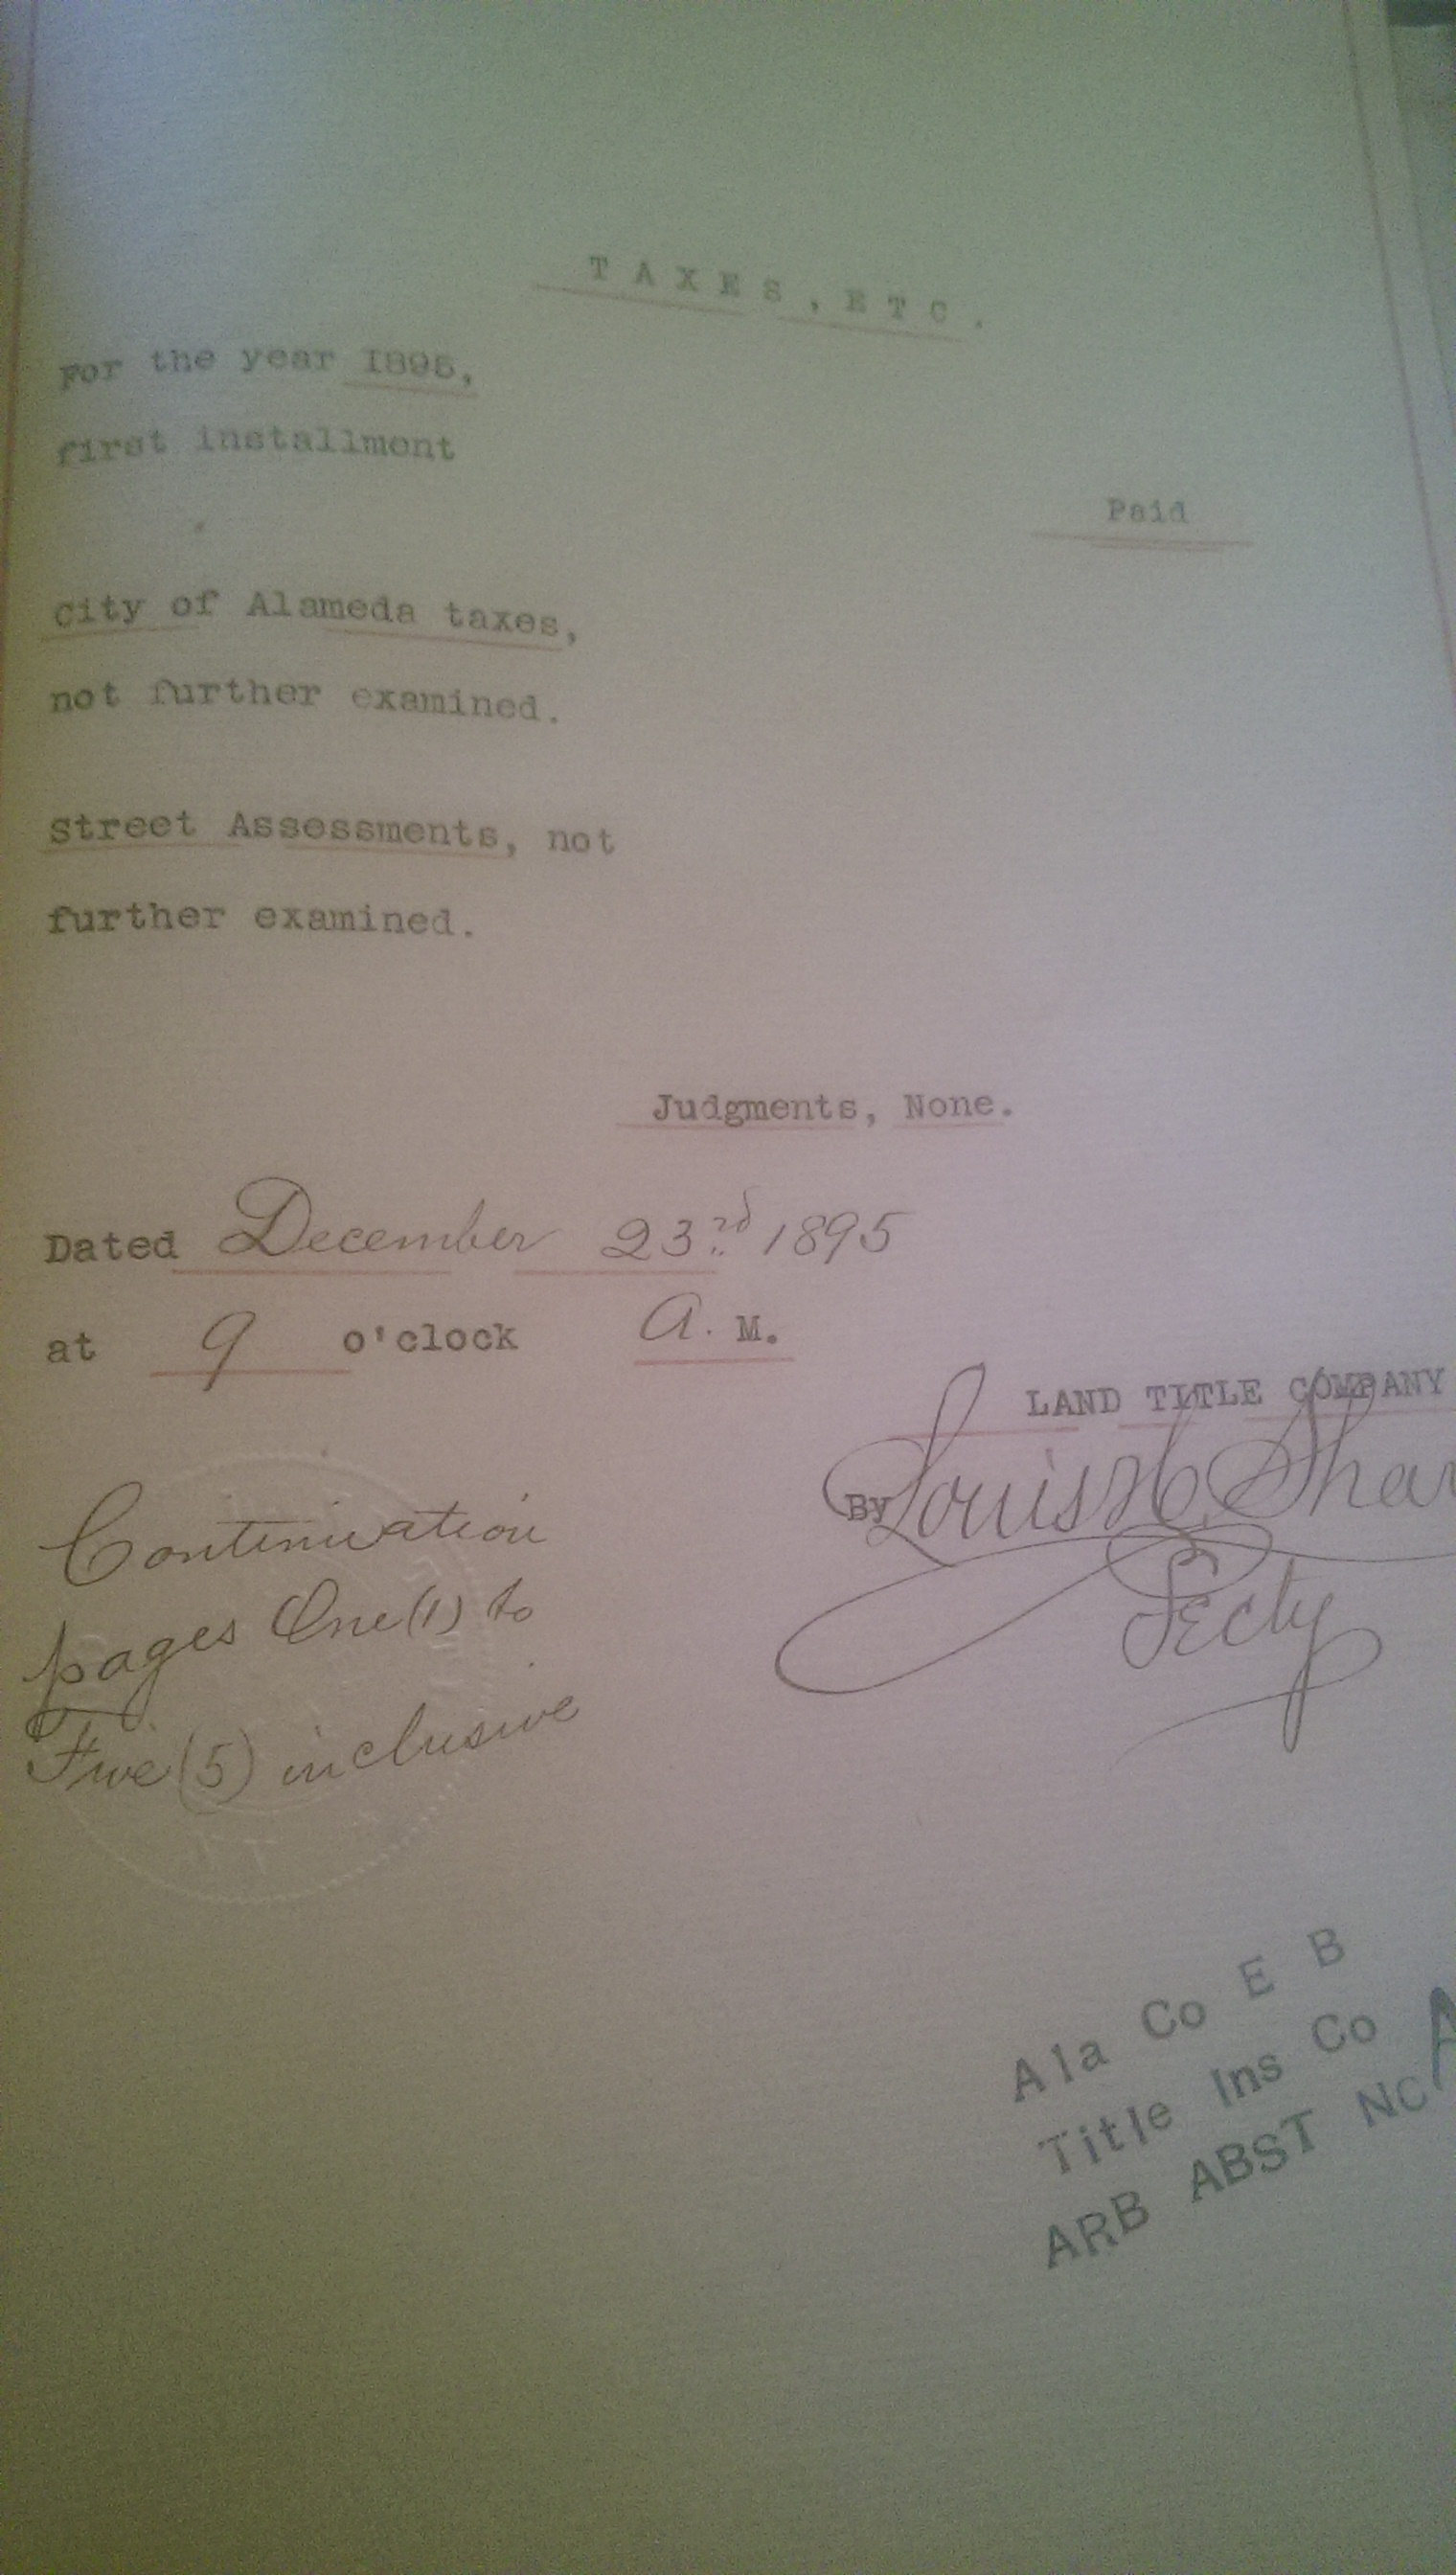 TAXES, ETC.
For the year 1895,
first installment
Paid
City of Alameda taxes,
not further examined.
Street Assessments, not
further examined.
Judgments, None.
Dated December 23rd 1895
at 9 o'clock A. M.
LAND TITLE COMPANY
By Louis H. Shar
Secty
Continuation
pages One (1) to
Five (5) inclusive
Ala Co E B
Title Ins Co
ARB ABST No A